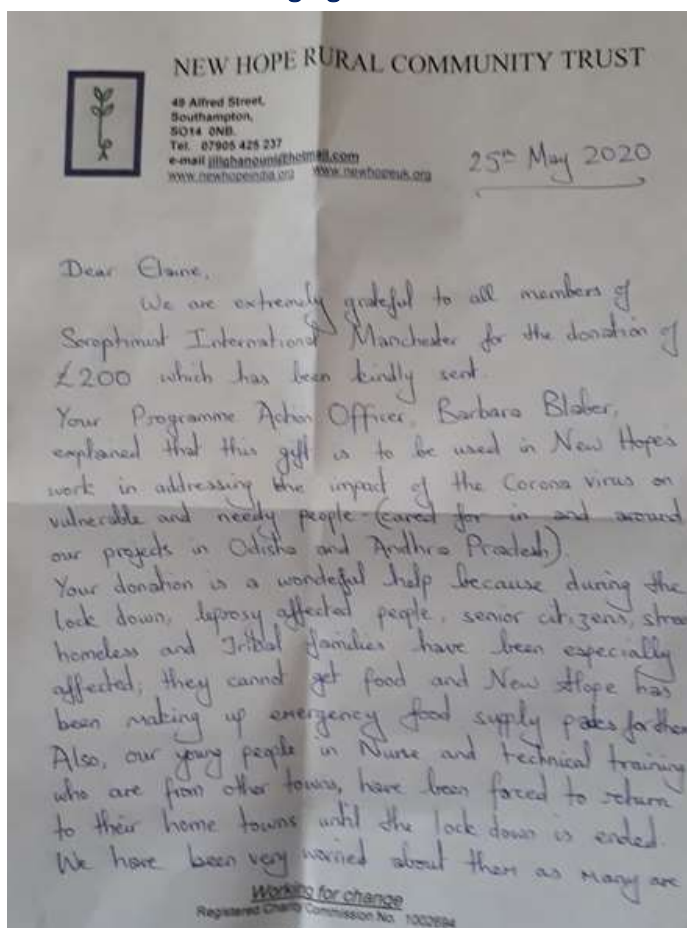 NEW HOPE RURAL COMMUNITY TRUST
49 Alfred Street,
Southampton,
SO14 0NB.
Tel. 07905 425 237
e-mail jillghanouni@hotmail.com
www.newhopeindia.org www.newhopeuk.org
25th May 2020
Dear Elaine,
We are extremely grateful to all members of
Soroptimist International Manchester for the donation of
£200 which has been kindly sent.
Your Programme Action Officer, Barbara Blaber,
explained that this gift is to be used in New Hope's
work in addressing the impact of the Corona virus on
vulnerable and needy people (cared for in and around
our projects in Odisha and Andhra Pradesh).
Your donation is a wonderful help because during the
lock down, leprosy affected people, senior citizens, stree
homeless and Tribal families have been especially
affected; they cannot get food and New Hope has
been making up emergency food supply packs for them
Also, our young people in Nurse and technical training
who are from other towns, have been forced to return
to their home towns until the lock down is ended.
We have been very worried about them as many are
Working for change
Registered Charity Commission No. 1002694